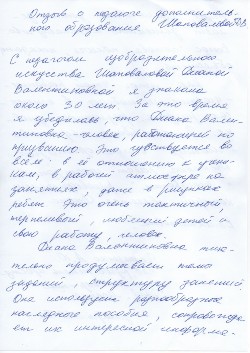 Отзыв о педагоге дополнитель-
ного образования Шаповаловой Д.В.
С педагогом изобразительного
искусства Шаповаловой Дианой
Валентиновной я знакома
около 30 лет. За это время
я убедилась, что Диана Вален-
тиновна - человек, работающий по
призванию. Это чувствуется во
всём: в её отношении к учени-
кам, в рабочей атмосфере на
занятиях, даже в рисунках
ребят. Это очень тактичный,
терпеливый, любящий детей и
свою работу, человек.
Диана Валентиновна тща-
тельно продумывает темы
заданий, структуру занятий.
Она использует разнообразные
наглядные пособия, сопровожда-
ет их интересной информа-